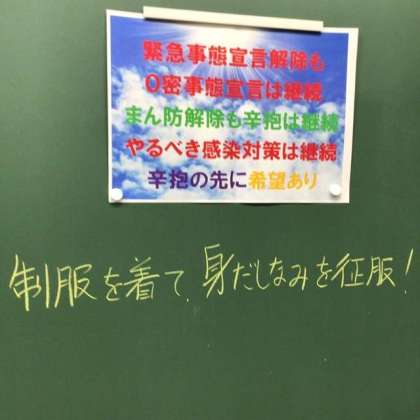 緊急事態宣言解除も
0密事態宣言は継続
まん防解除も辛抱は継続
やるべき感染対策は継続
辛抱の先に希望あり
制服を着て、身だしなみを征服！